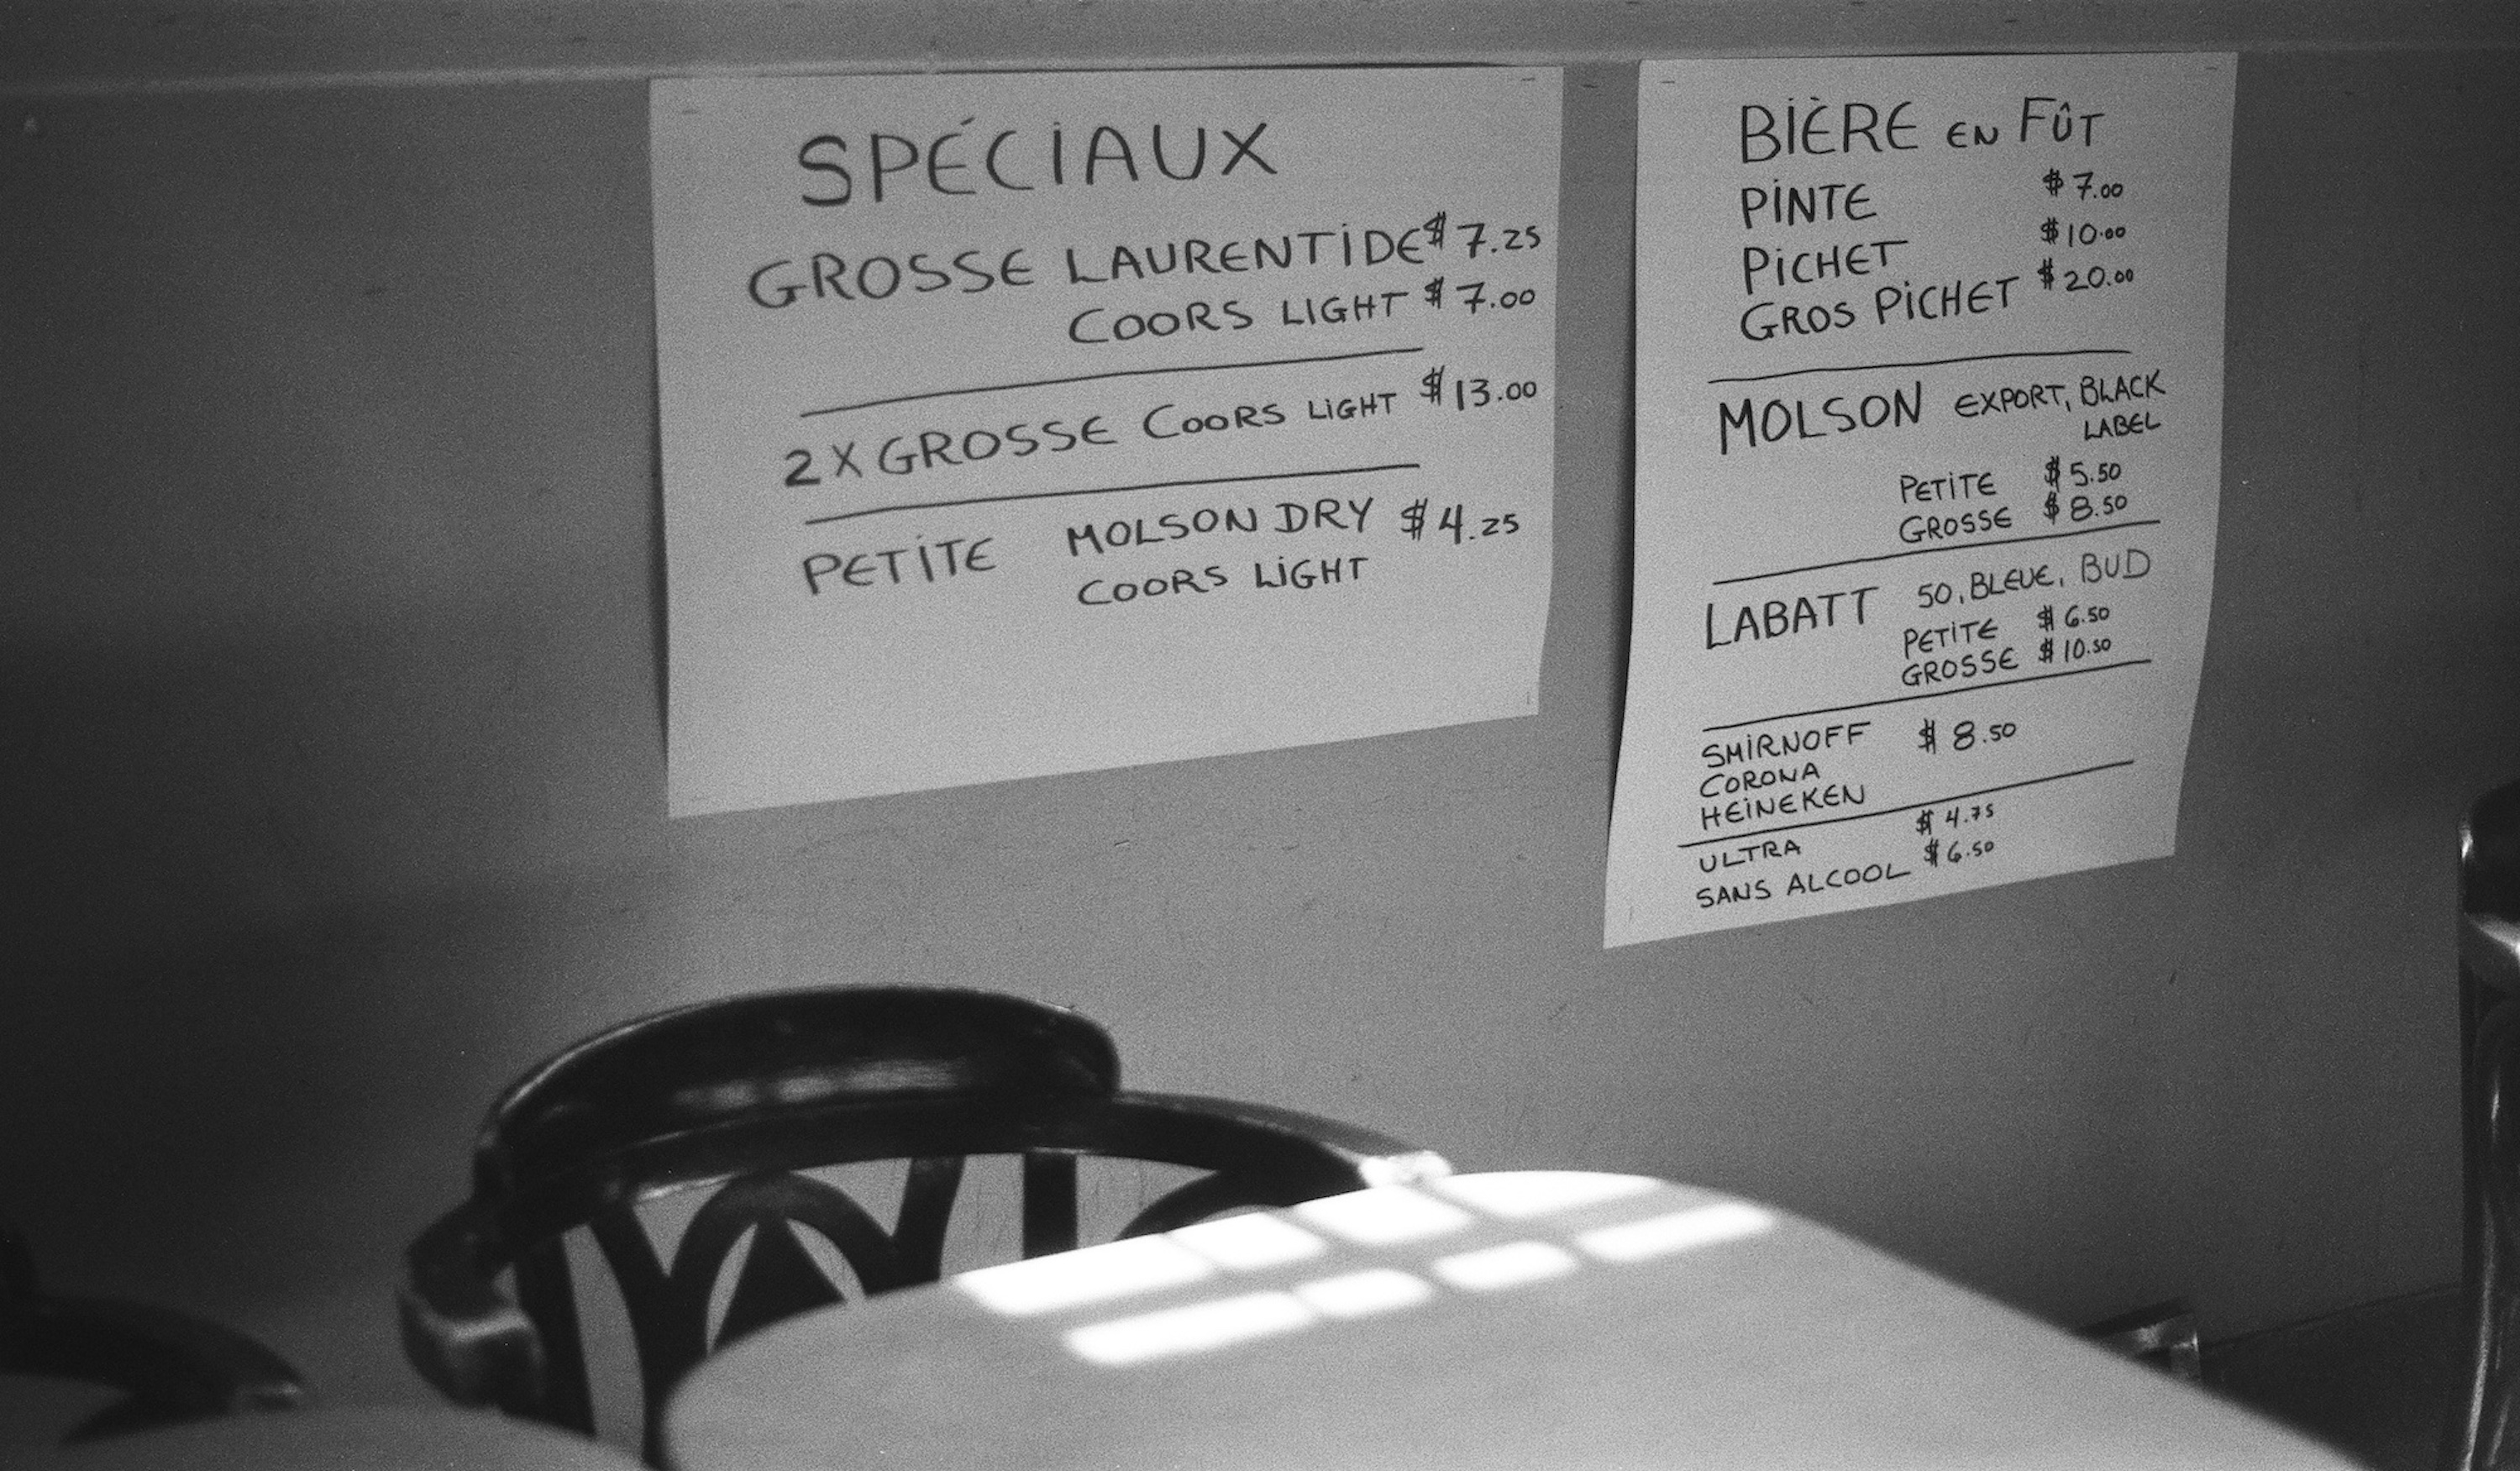 SPÉCIAUX
GROSSE LAURENTIDE $7.25
COORS LIGHT $7.00
2 X GROSSE COORS LIGHT $13.00
PETITE MOLSON DRY $4.25
COORS LIGHT
BIÈRE EN FÛT
PINTE $7.00
PICHET $10.00
GROS PICHET $20.00
MOLSON EXPORT, BLACK
LABEL
PETITE $5.50
GROSSE $8.50
LABATT 50, BLEUE, BUD
PETITE $6.50
GROSSE $10.50
SMIRNOFF $8.50
CORONA
HEINEKEN
ULTRA $4.75
SANS ALCOOL $6.50